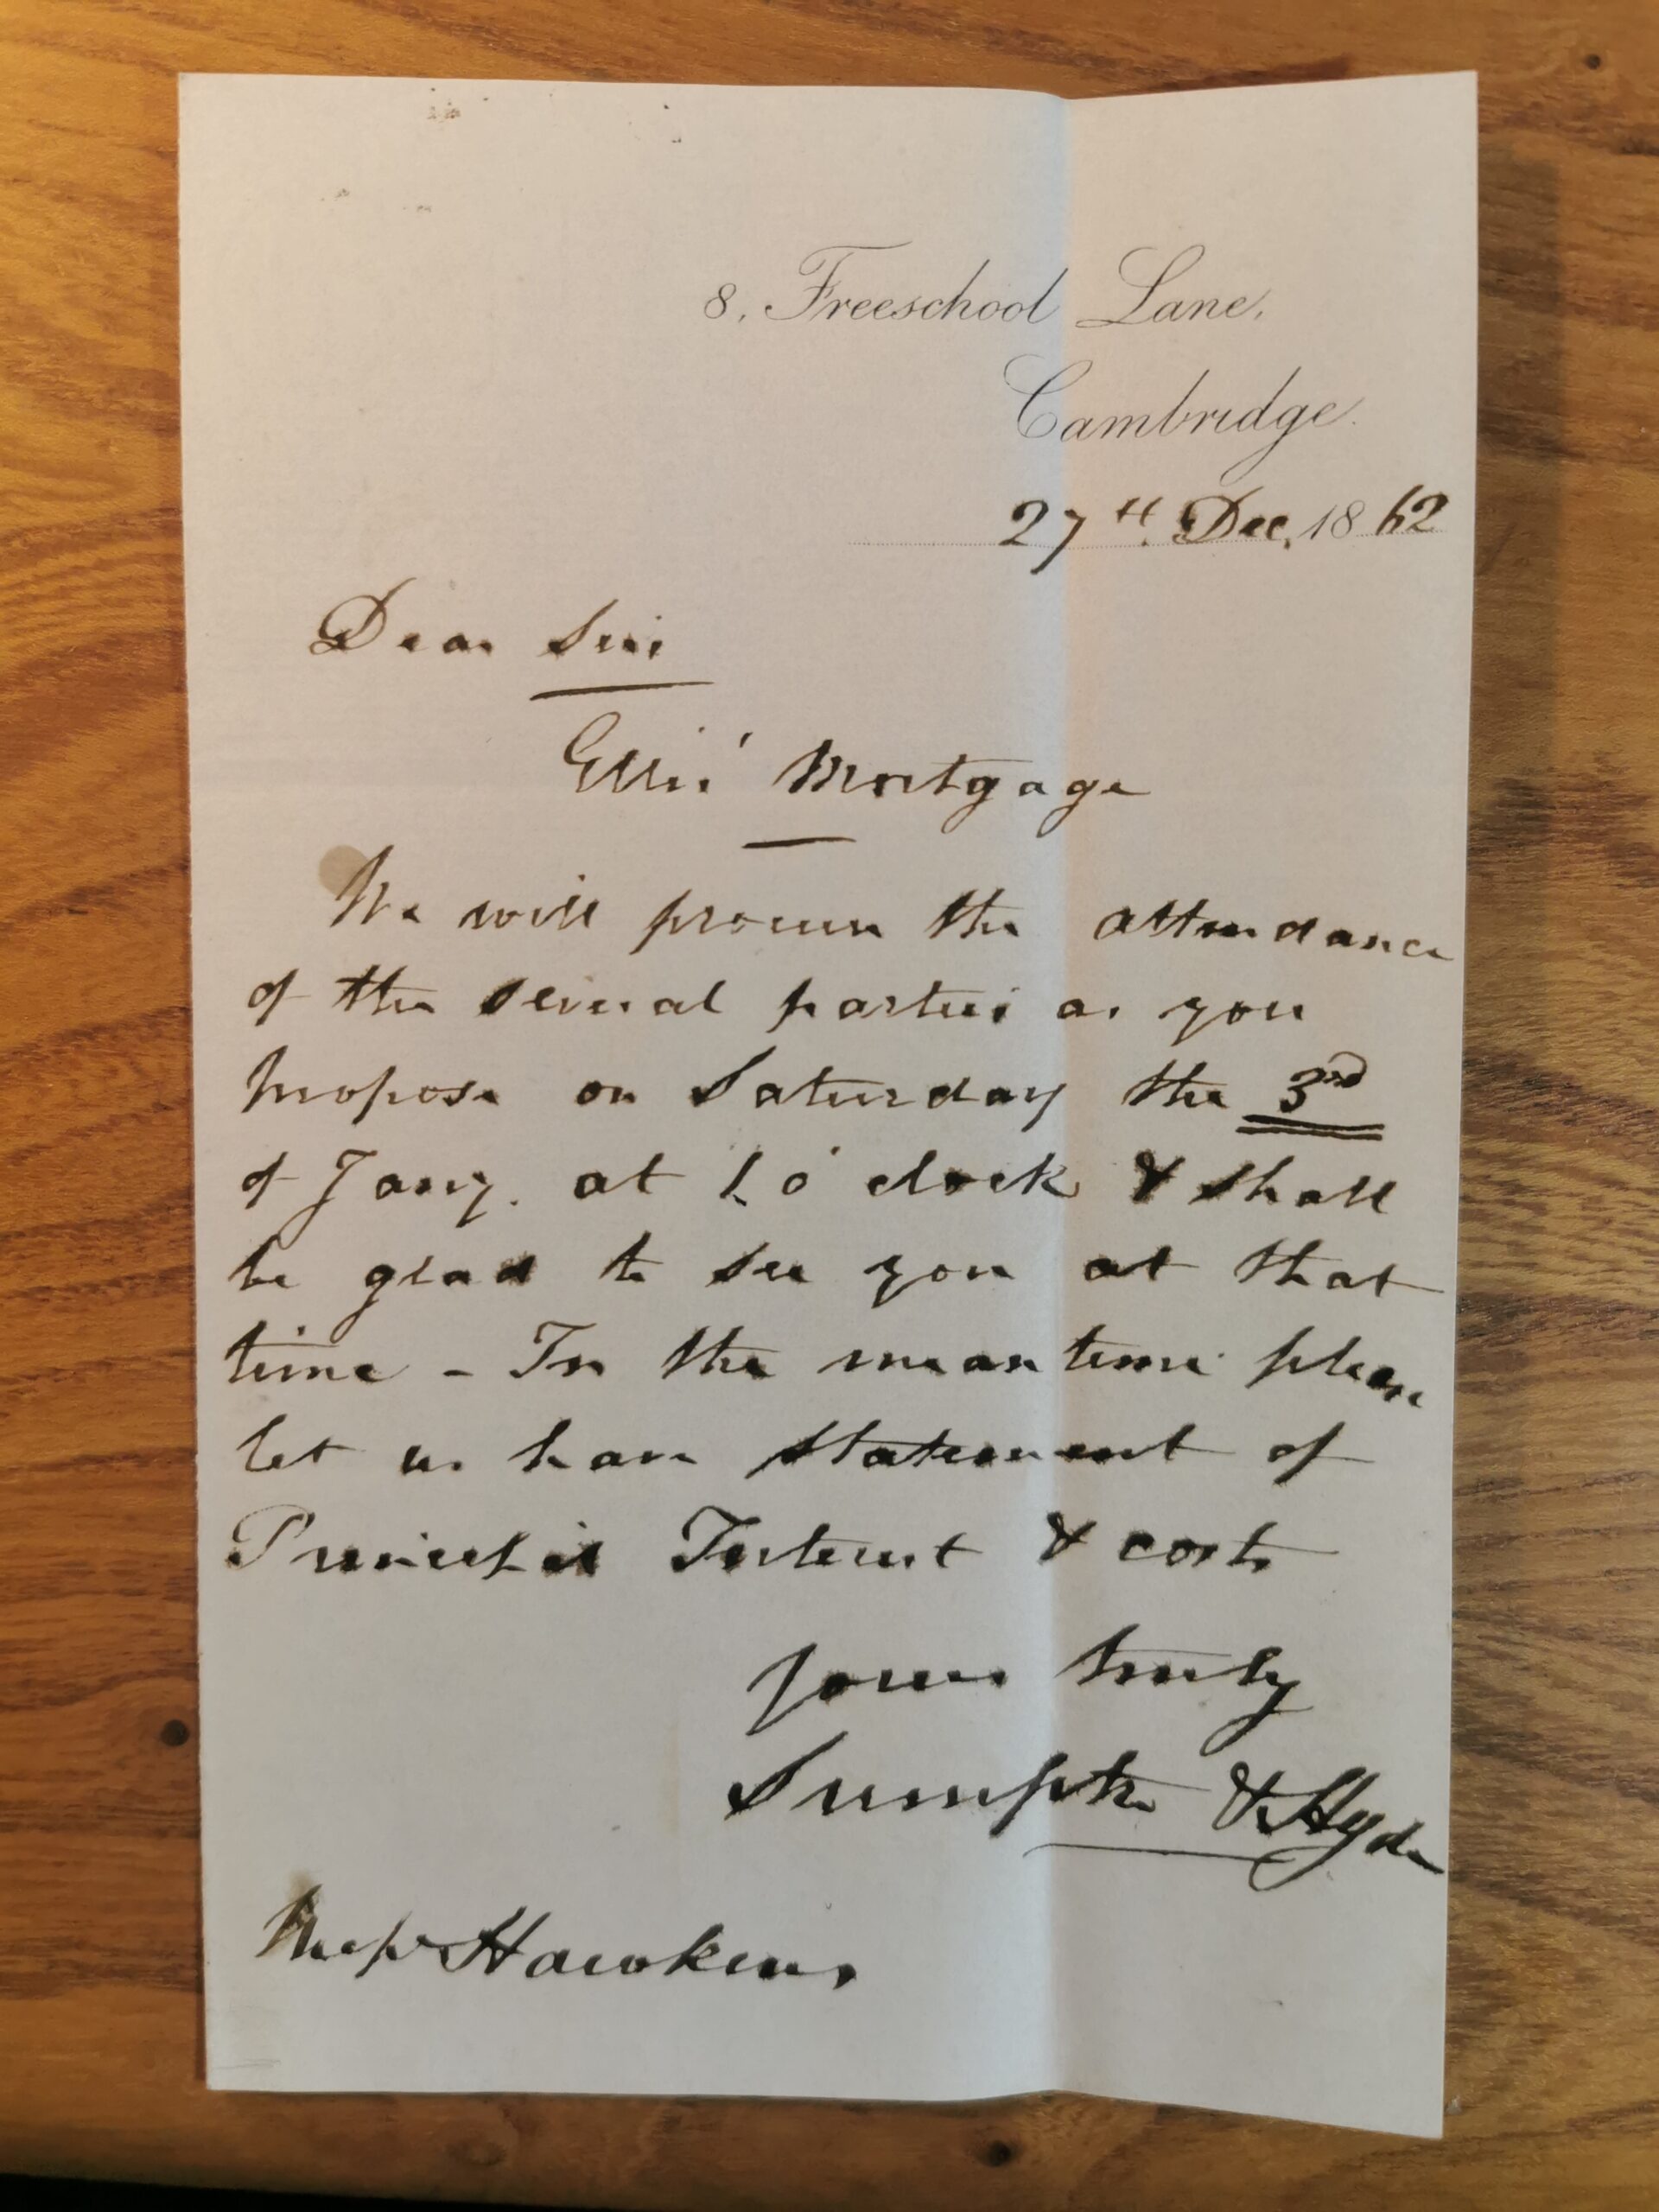 8, Freeschool Lane,
Cambridge.
27th Dec, 1862
Dear Sirs
Ellis' Mortgage
We will procure the attendance
of the several parties as you
propose on Saturday the 3rd
of Jany. at 1 o'clock & shall
be glad to see you at that
time - In the mean time please
let us have statement of
Principal Interest & costs
Yours truly
Sumpter & Hyde
Hawkins